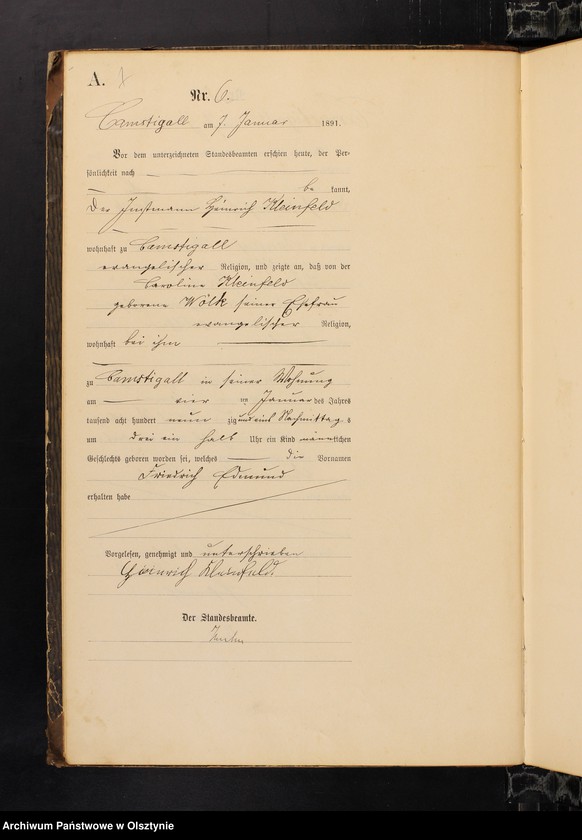 A.
Nr. 6.
Camstigall am 7. Januar 1891.
Vor dem unterzeichneten Standesbeamten erschien heute, der Per-
sönlichkeit nach
be kannt,
Der Instmann Heinrich Kleinfeld
wohnhaft zu Camstigall
evangelischer Religion, und zeigte an, daß von der
Caroline Kleinfeld
geborene Wölk seiner Ehefrau
evangelischer Religion,
wohnhaft bei ihm
zu Camstigall in seiner Wohnung
am vier ten Januar des Jahres
tausend acht hundert neun zig und eins Nachmittag s
um drei ein halb Uhr ein Kind männlichen
Geschlechts geboren worden sei, welches die Vornamen
Friedrich Edmund
erhalten habe
Vorgelesen, genehmigt und unterschrieben
Heinrich Kleinfeld.
Der Standesbeamte.
Archiwum Państwowe w Olsztynie